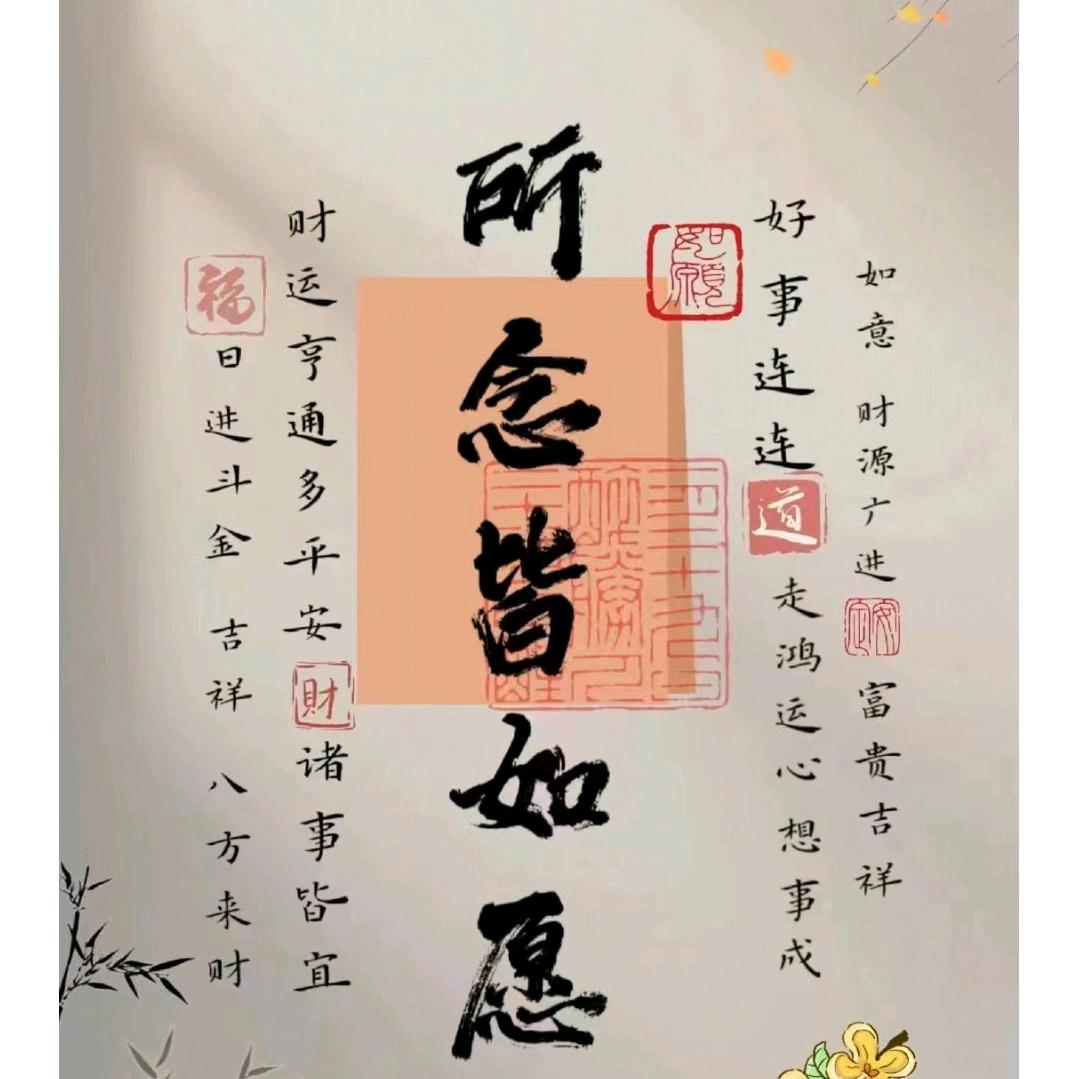 如意 财源广进 安定 富贵吉祥
好事连连 道 走鸿运心想事成
如愿
所念皆如愿
财运亨通多平安 财 诸事皆宜
福 日进斗金 吉祥 八方来财